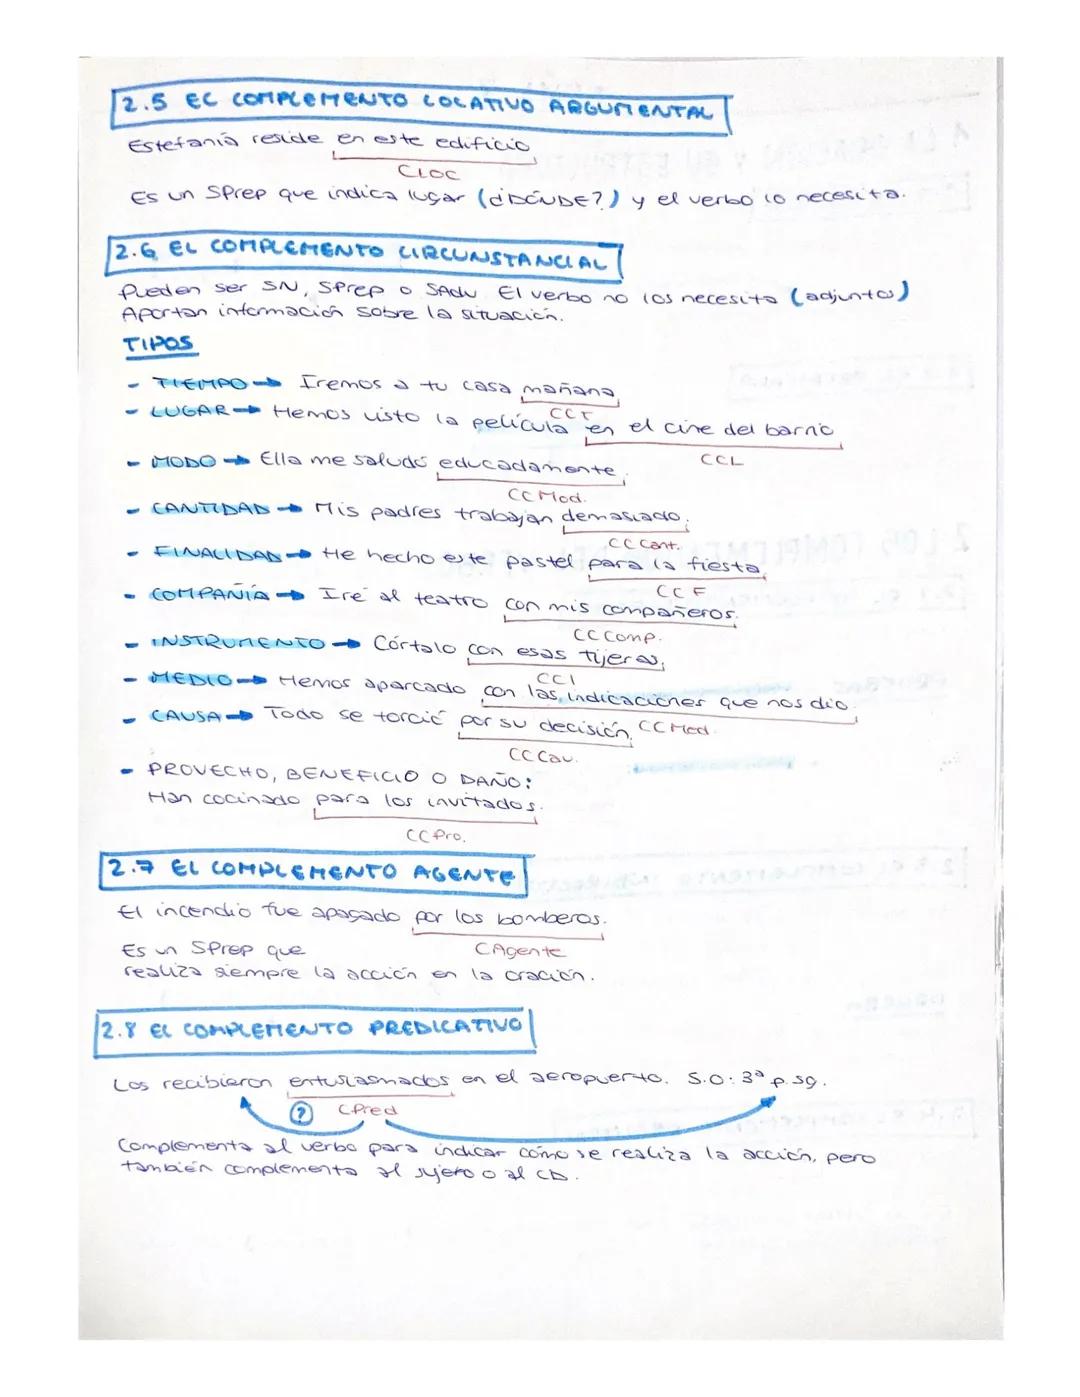 2.5 EL COMPLEMENTO LOCATIVO ARGUMENTAL
Estefanía reside en este edificio
CLOC
Es un SPrep que indica lugar (¿DÓNDE?) y el verbo lo necesita.
2.6 EL COMPLEMENTO CIRCUNSTANCIAL
Pueden ser SN, SPrep o SAdv. El verbo no los necesita (adjuntos)
Aportan información sobre la situación.
TIPOS
- TIEMPO → Iremos a tu casa mañana
CCT
- LUGAR → Hemos visto la película en el cine del barrio
CCL
- MODO → Ella me saludó educadamente.
CCMod.
- CANTIDAD → Mis padres trabajan demasiado.
CCCant.
- FINALIDAD → He hecho este pastel para la fiesta
CCF
- COMPAÑÍA → Iré al teatro con mis compañeros.
CCComp.
- INSTRUMENTO → Córtalo con esas tijeras.
CCI
- MEDIO → Hemos aparcado con las indicaciones que nos dio.
CCMed.
- CAUSA → Todo se torció por su decisión.
CCCau.
- PROVECHO, BENEFICIO O DAÑO:
Han cocinado para los invitados.
CCPro.
2.7 EL COMPLEMENTO AGENTE
El incendio fue apagado por los bomberos.
CAgente
Es un SPrep que
realiza siempre la acción en la oración.
2.8 EL COMPLEMENTO PREDICATIVO
Los recibieron entusiasmados en el aeropuerto. S.O: 3ª p.sg.
? CPred
Complementa al verbo para indicar cómo se realiza la acción, pero
también complementa al sujeto o al CD.